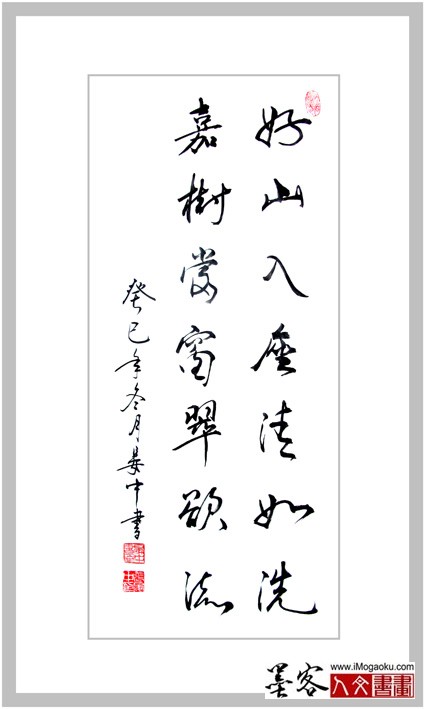 好山入座清如洗
嘉樹當窗翠欲流
癸巳年冬月晏中書
www.iMogaoku.com
墨客
人文書畫